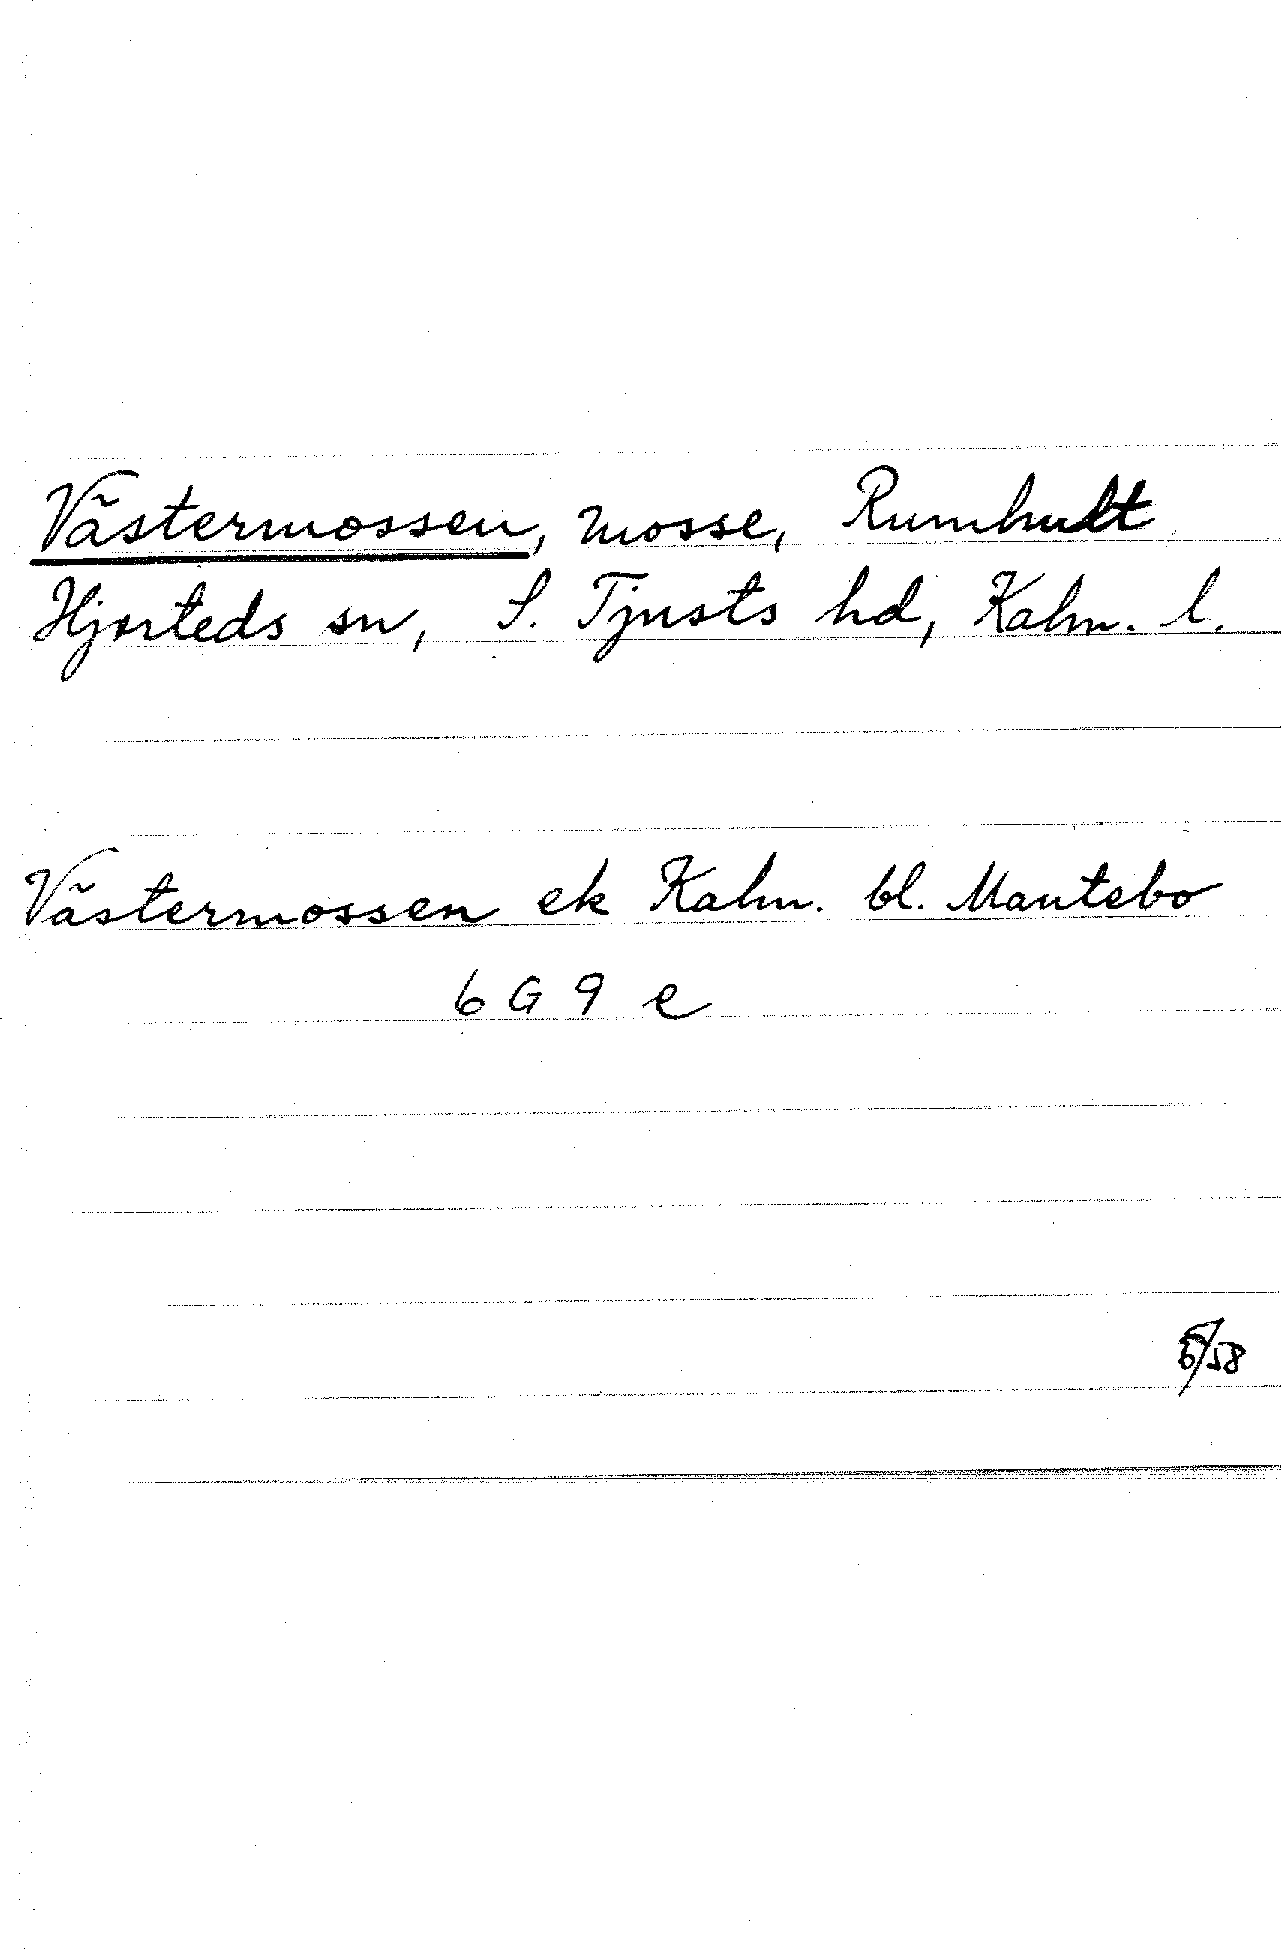 Västermossen, mosse, Rumhult
Hjorteds sn, S. Tjusts hd, Kalm. l.
Västermossen ek Kalm. bl. Mantebo
6 G 9 e